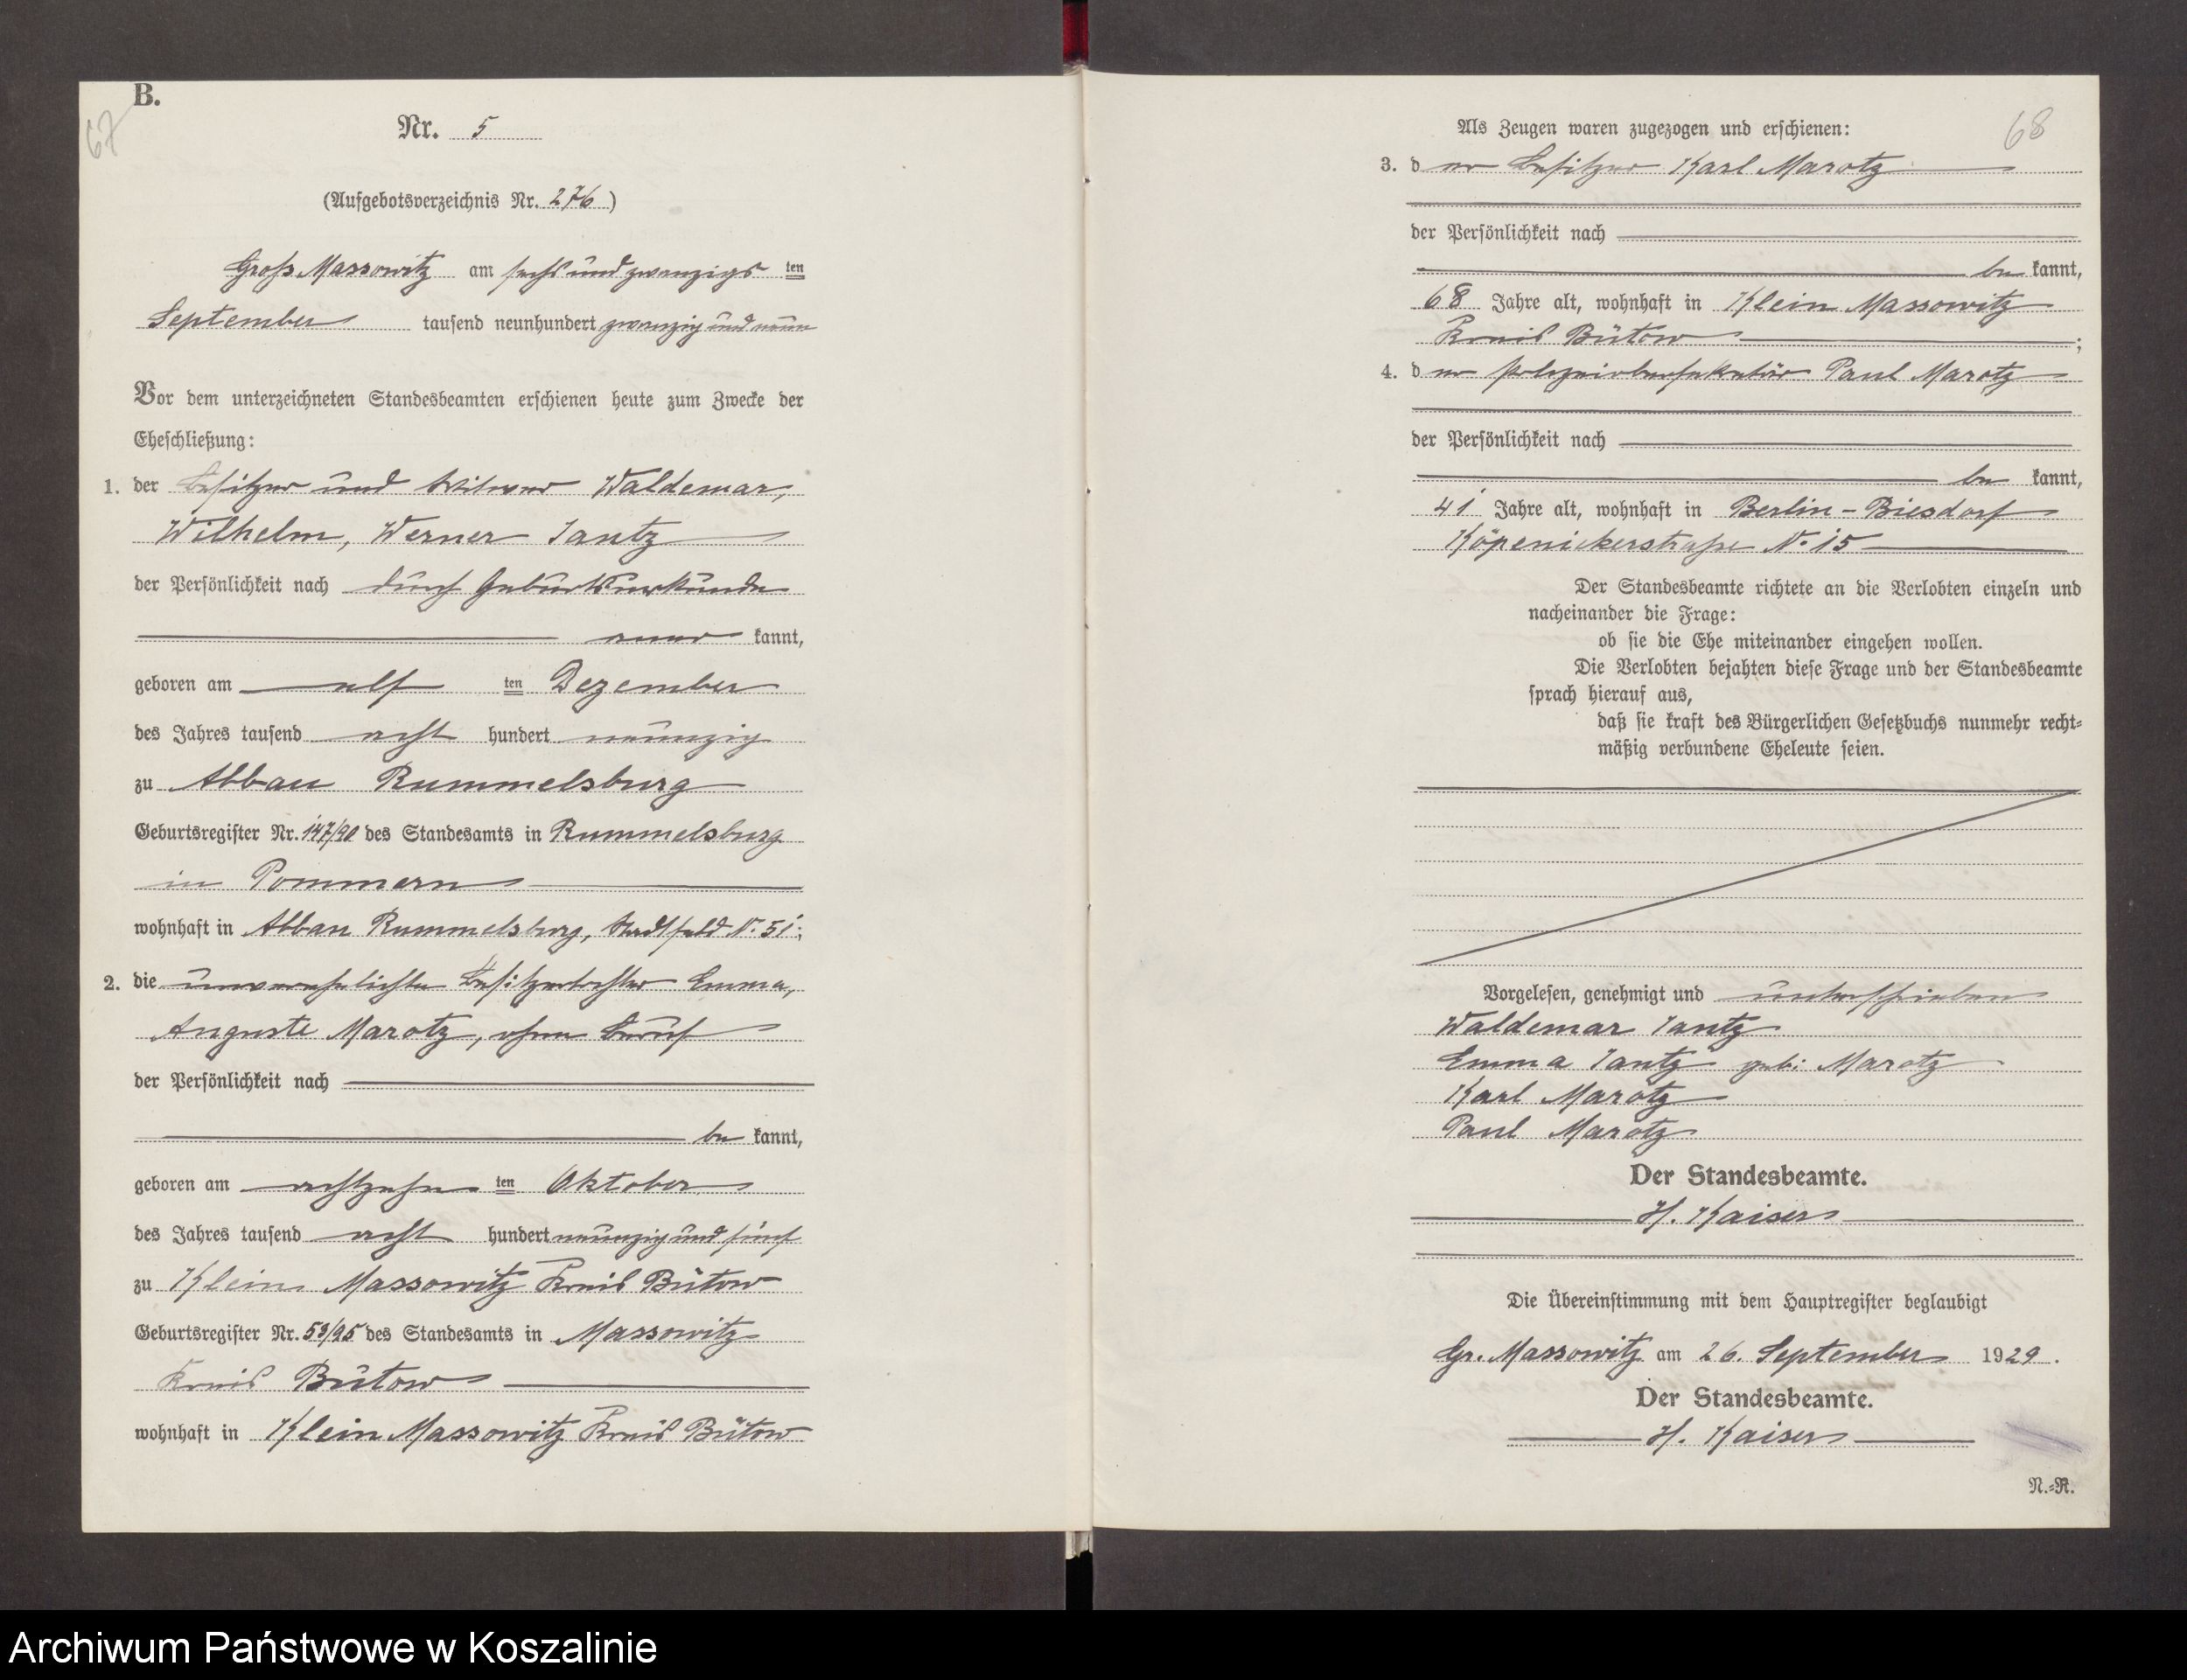 B.
67
Nr. 5
(Aufgebotsverzeichnis Nr. 276)
Groß Massowitz am sechs und zwanzigs ten
September tausend neunhundert zwanzig und neun
Vor dem unterzeichneten Standesbeamten erschienen heute zum Zwecke der
Eheschließung:
1. der Besitzer und Witwer Waldemar,
Wilhelm, Werner Jantz
der Persönlichkeit nach durch Geburtsurkunde
aner kannt,
geboren am elf ten Dezember
des Jahres tausend acht hundert neunzig
zu Abbau Rummelsburg
Geburtsregister Nr. 147/90 des Standesamts in Rummelsburg
in Pommern
wohnhaft in Abbau Rummelsburg, Stadtfeld N. 51;
2. die unverehelichte Besitzertochter Emma,
Auguste Marotz, ohne Beruf
der Persönlichkeit nach
be kannt,
geboren am achtzehn ten Oktober
des Jahres tausend acht hundert neunzig und fünf
zu Klein Massowitz Kreis Bütow
Geburtsregister Nr. 53/95 des Standesamts in Massowitz
Kreis Bütow
wohnhaft in Klein Massowitz Kreis Bütow
68
Als Zeugen waren zugezogen und erschienen:
3. d er Besitzer Karl Marotz
der Persönlichkeit nach
be kannt,
68 Jahre alt, wohnhaft in Klein Massowitz
Kreis Bütow ;
4. d er Polizeiobersekretär Paul Marotz
der Persönlichkeit nach
be kannt,
41 Jahre alt, wohnhaft in Berlin-Biesdorf
Köpenickerstraße N. 15
Der Standesbeamte richtete an die Verlobten einzeln und
nacheinander die Frage:
ob sie die Ehe miteinander eingehen wollen.
Die Verlobten bejahten diese Frage und der Standesbeamte
sprach hierauf aus,
daß sie kraft des Bürgerlichen Gesetzbuchs nunmehr recht-
mäßig verbundene Eheleute seien.
Vorgelesen, genehmigt und unterschrieben
Waldemar Jantz
Emma Jantz geb: Marotz
Karl Marotz
Paul Marotz
Der Standesbeamte.
H. Kaiser
Die Übereinstimmung mit dem Hauptregister beglaubigt
Gr. Massowitz am 26. September 1929.
Der Standesbeamte.
H. Kaiser
N.-R.
Archiwum Państwowe w Koszalinie